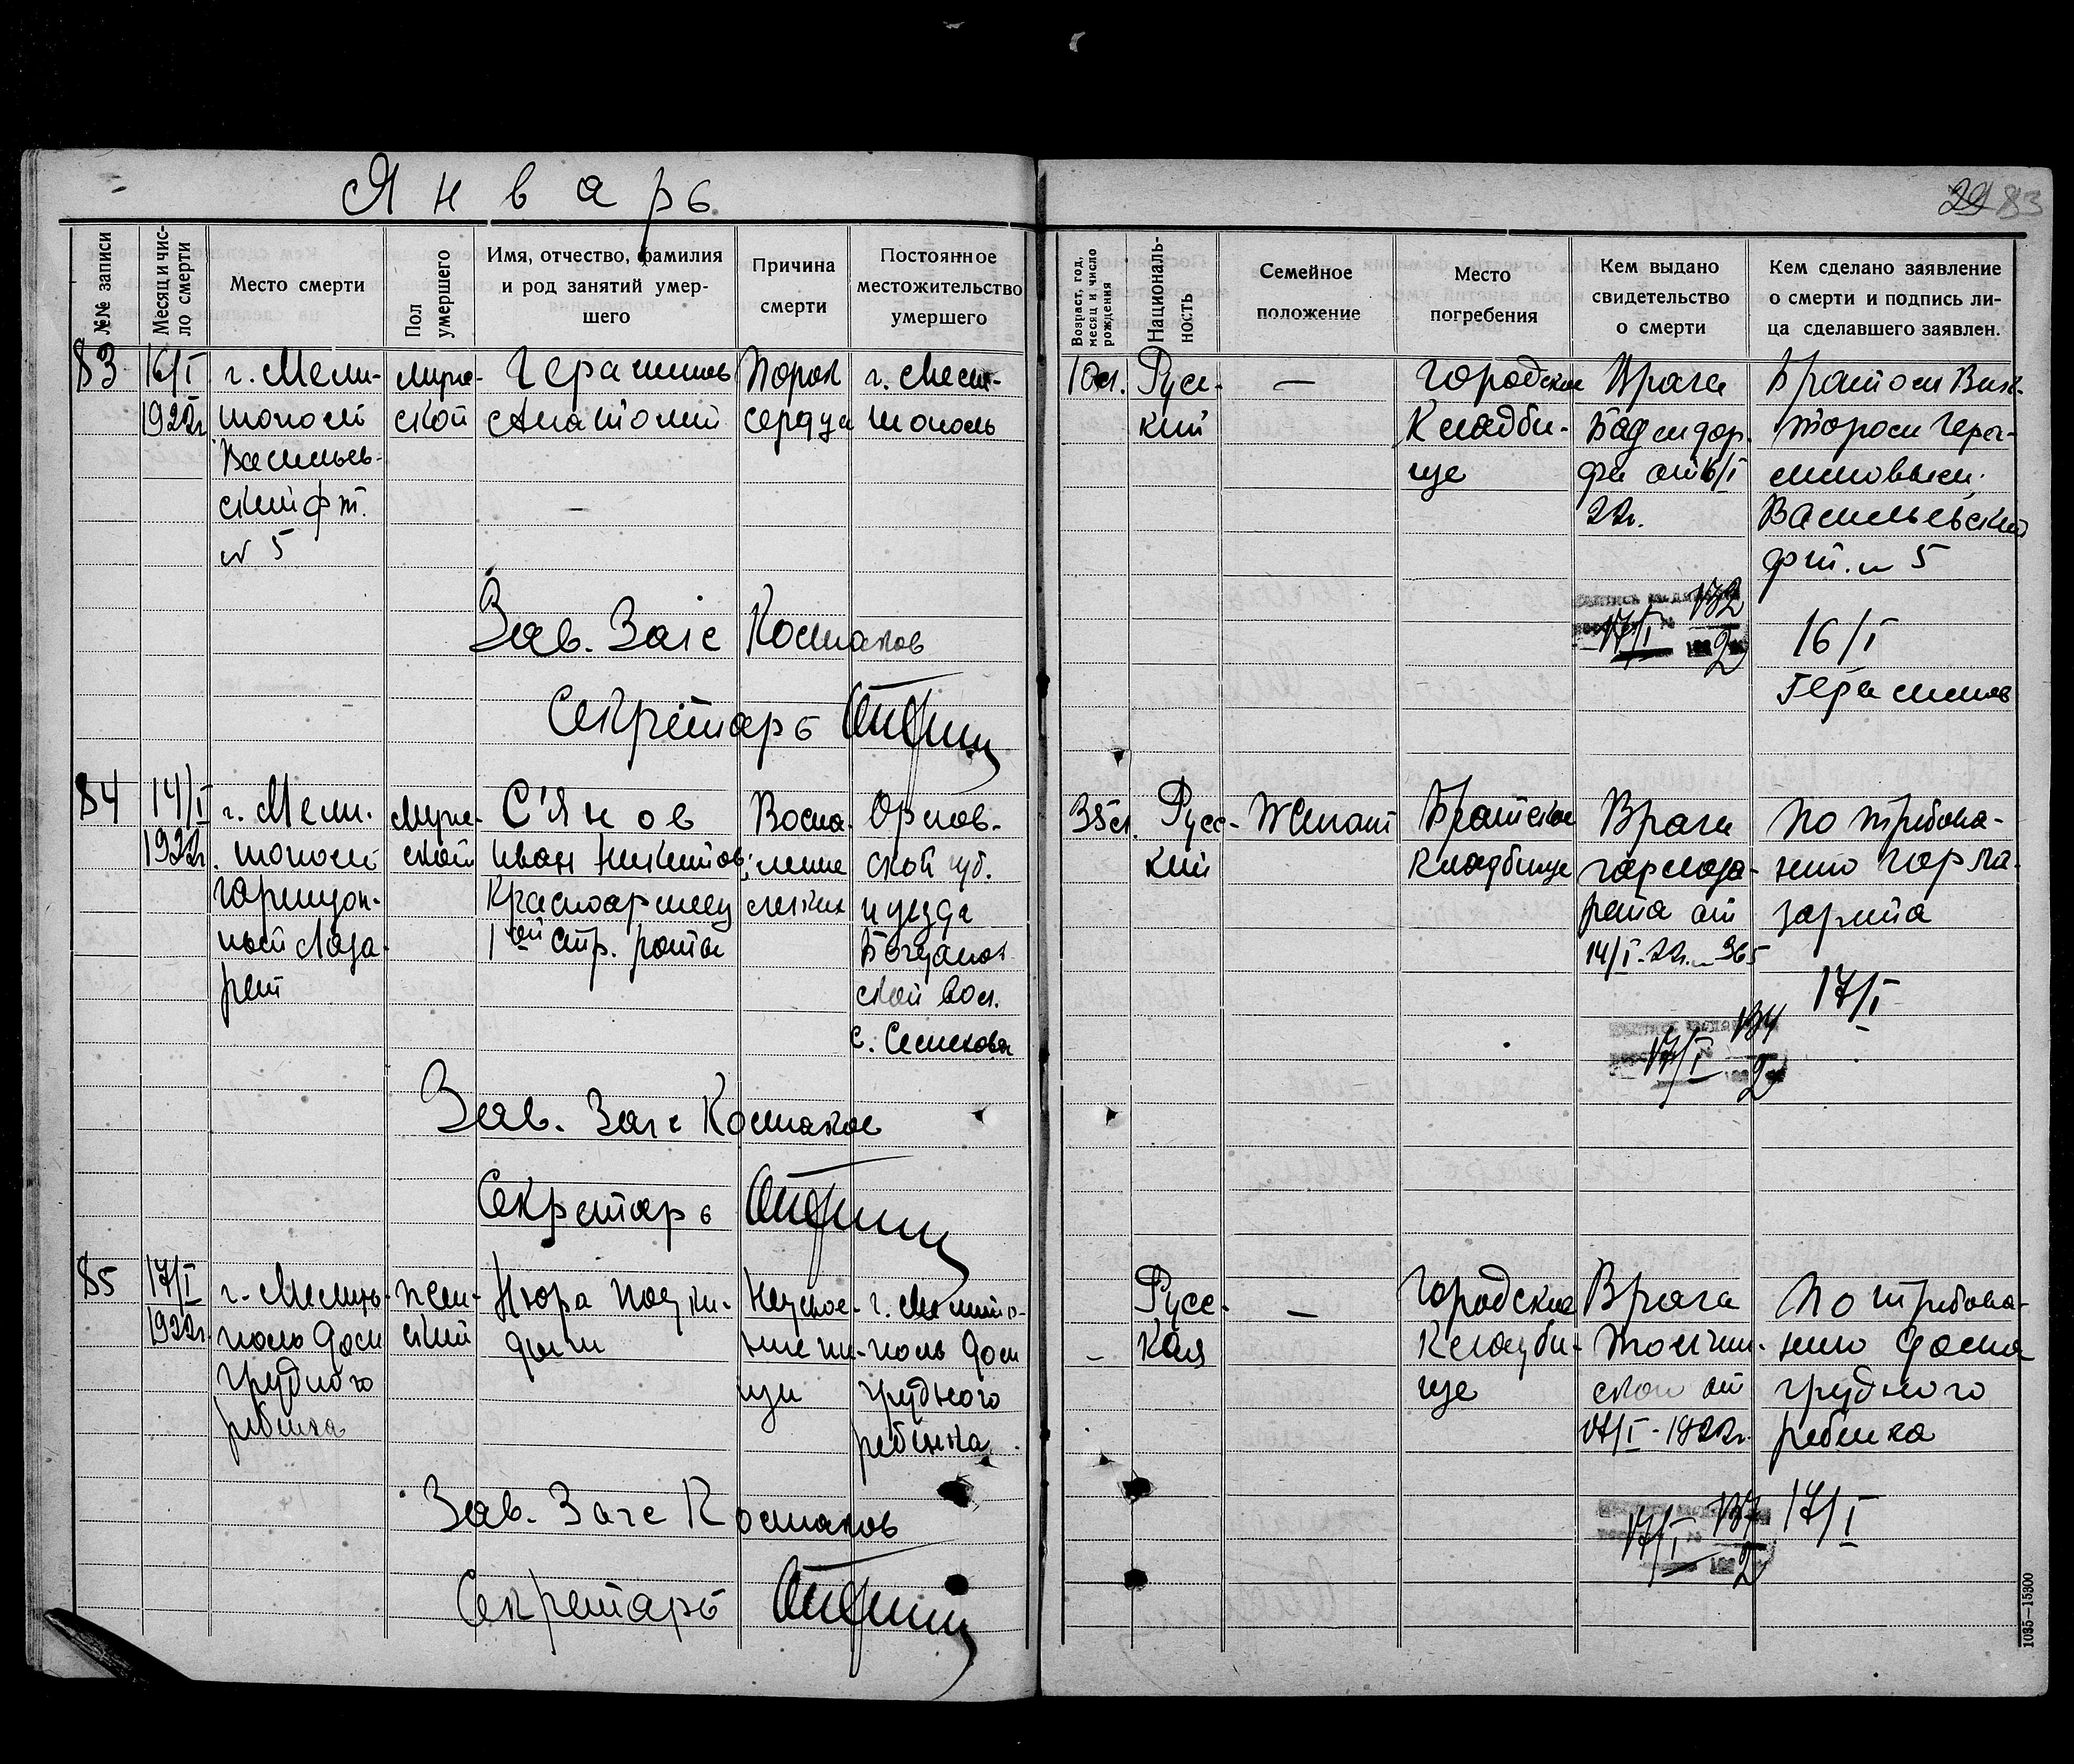 Январь
29 83
№№ записи
Месяц и чис-
ло смерти
Место смерти
Пол
умершего
Имя, отчество, фамилия
и род занятий умер-
шего
Причина
смерти
Постоянное
местожительство
умершего
Возраст, год,
месяц и число
рождения
Националь-
ность
Семейное
положение
Место
погребения
Кем выдано
свидетельство
о смерти
Кем сделано заявление
о смерти и подпись ли-
ца сделавшего заявлен.
83
16/I
1922г.
г. Мели-
тополь
Васильев-
ский
№ 5
мужс-
ской
Герасимов
Анатолий
Порок
сердца
г. Мели-
тополь
10л.
Русс-
кий
—
Городское
Кладби-
ще
Врача
от 16/I
22г.
Братом Вик-
тором Гера-
симовым
Васильевский
№ 5
16/I
Герасимов
17/I 132
2
Зав. Загс
Секретарь
84
14/I
1922г.
г. Мели-
тополь
гарнизон-
ный Лаза-
рет
мужс-
ской
С'янов
Иван Никитов;
Красноармеец
1ой стр. роты
Воспа-
ление
легких
Орлов-
ской губ.
и уезда
Богданов-
ской вол.
с. Семенова
35л.
Русс-
кий
Женат
Братское
Кладбище
Врача
гарлаза-
рета от
14/I-22г. № 365
По требова-
нию гарла-
зарета
17/I
17/I 134
2
Зав. Загс
Секретарь
85
17/I
1922г.
г. Мелито-
поль дом
грудного
ребенка
жен-
ский
Нюра Подки-
дыш
Неусвое-
ние пи-
щи
г. Мелито-
поль дом
грудного
ребенка
–
Русс-
кая
—
Городское
Кладби-
ще
Врача
от
17/I-1922г.
По требова-
нию дома
грудного
ребенка
17/I
17/I 137
2
Зав. Загс
Секретарь
1035—15300